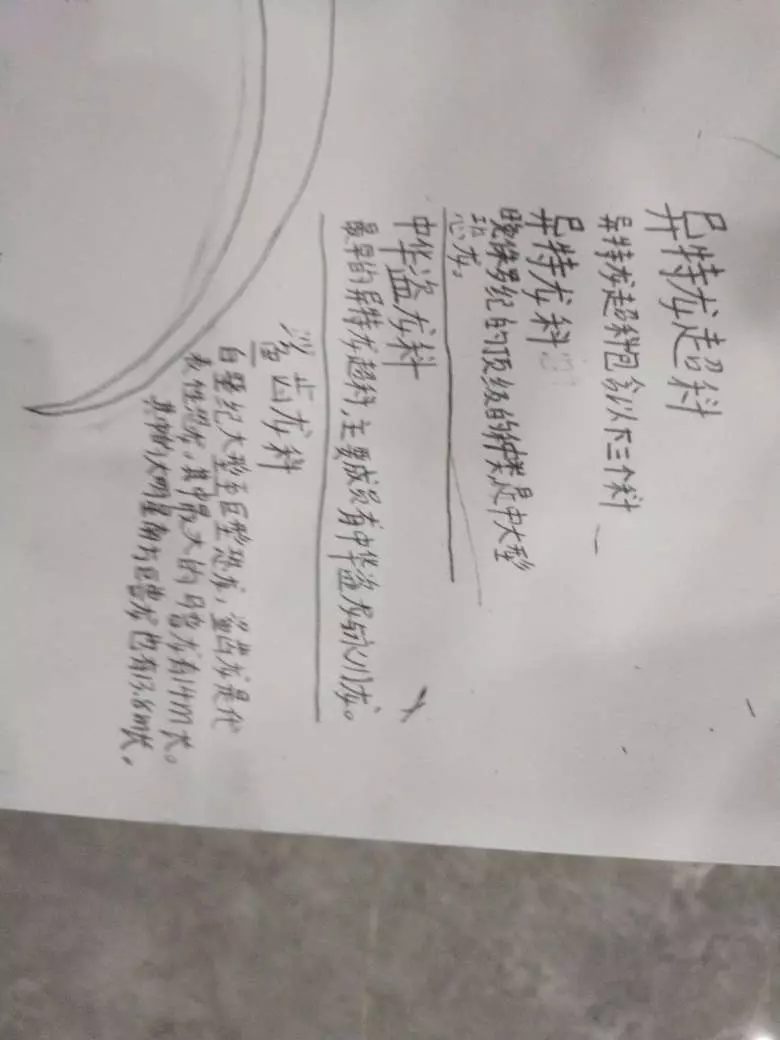 异特龙超科
异特龙超科包含以下三个科
异特龙科
晚侏罗纪的顶级的种类是中大型
恐龙。
中华盗龙科
最早的异特龙超科,主要成员有中华盗龙与永川龙。
鲨齿龙科
白垩纪大型至巨型恐龙,鲨齿龙是代
表性恐龙,其中最大的 龙有14m长。
其中的大明星南方巨兽龙也有13.8m长,